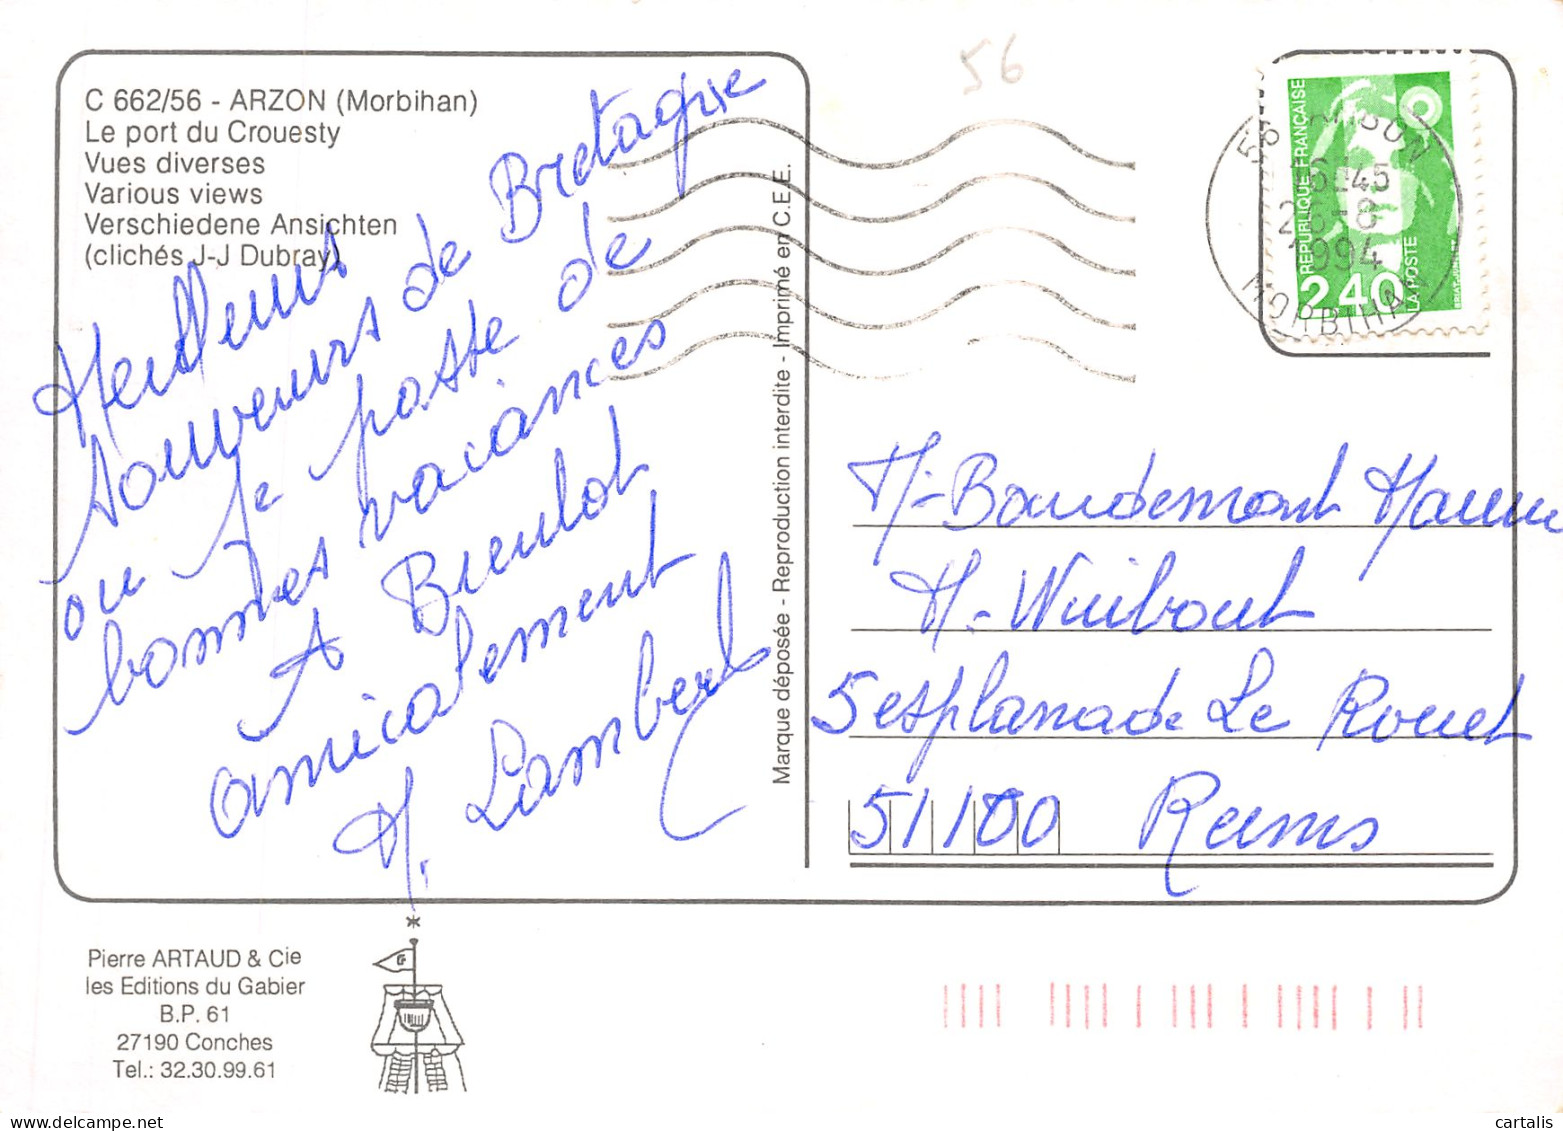 C 662/56 - ARZON (Morbihan)
Le port du Crouesty
Vues diverses
Various views
Verschiedene Ansichten
(clichés J-J Dubray)
Meilleurs
souvenirs de Bretagne
ou je passe de
bonnes vacances
A Bientot
amicalement
M. Lambert
Marque déposée - Reproduction interdite - Imprimé en C.E.E.
56
REPUBLIQUE FRANÇAISE
2,40
LA POSTE
16H45
26-8
1994
MORBIHAN
M. Boudemont
M. Wuibout
5 esplanade Le
51100 Reims
Pierre ARTAUD & Cie
les Editions du Gabier
B.P. 61
27190 Conches
Tel.: 32.30.99.61
cartalis